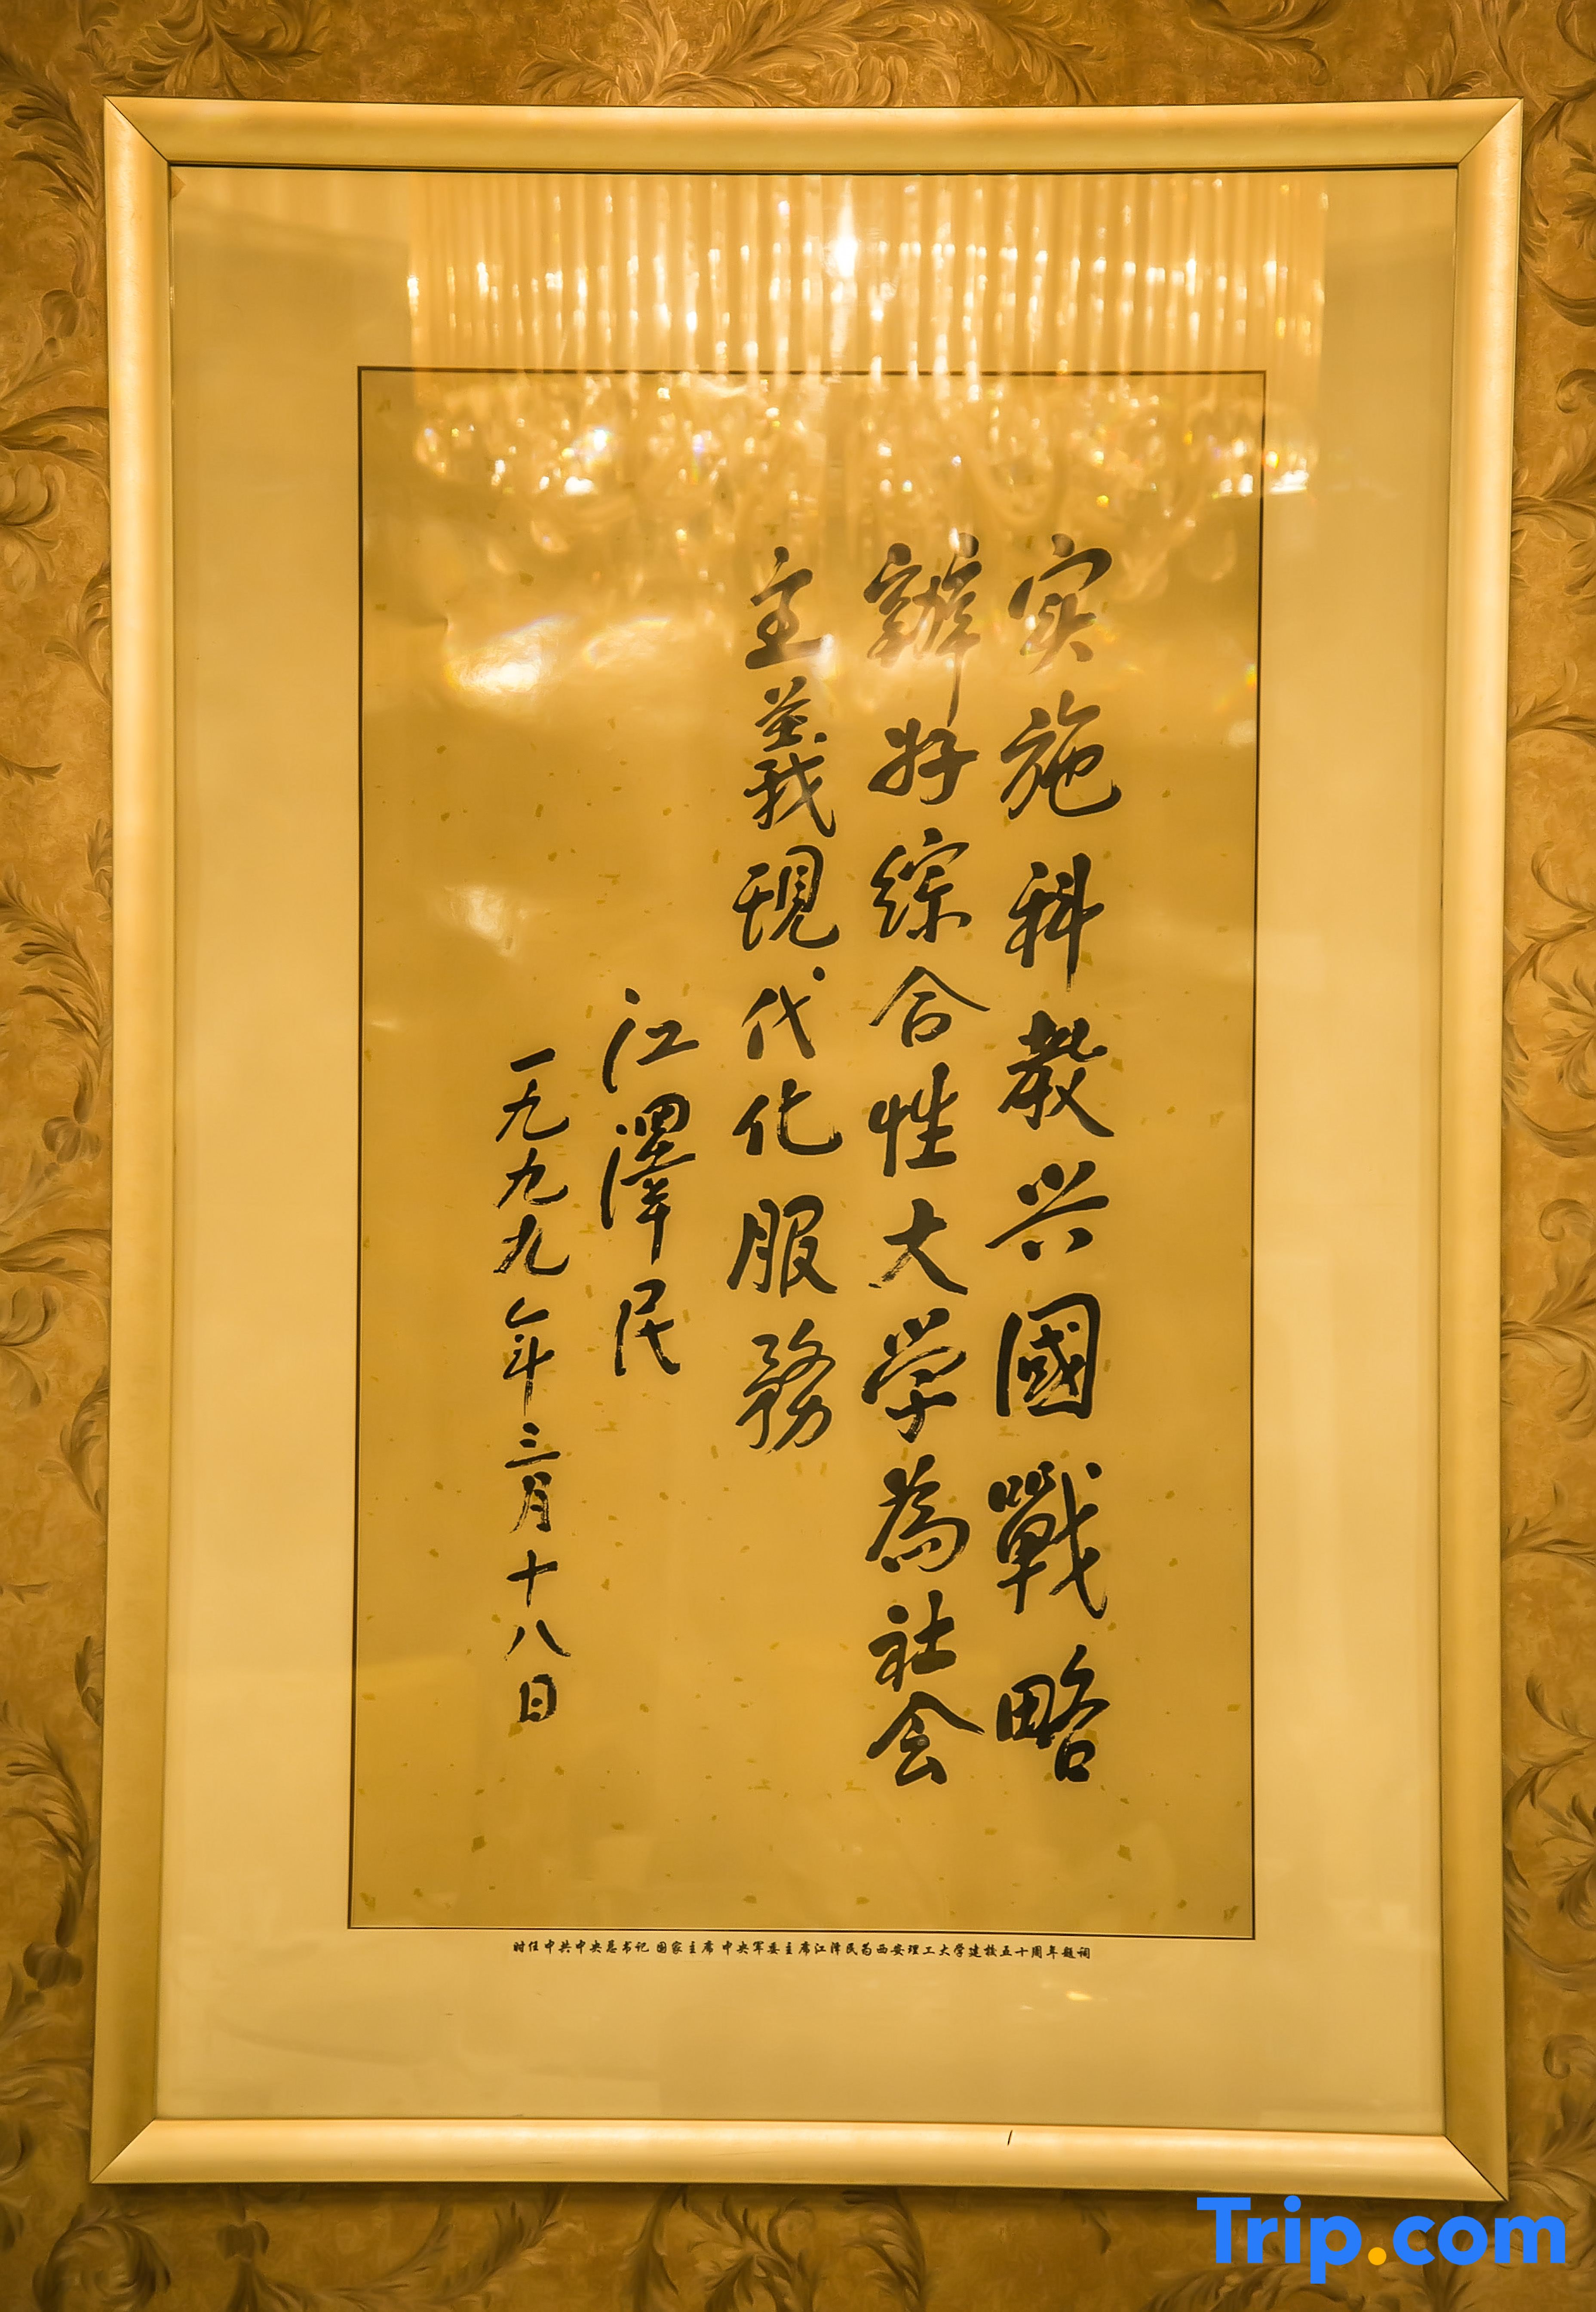 实施科教兴國戰略
辦好综合性大学為社会
主義現代化服務
江澤民
一九九九年三月十八日
时任中共中央总书记 国家主席 中央军委主席江泽民为西安理工大学建校五十周年题词
Trip.com